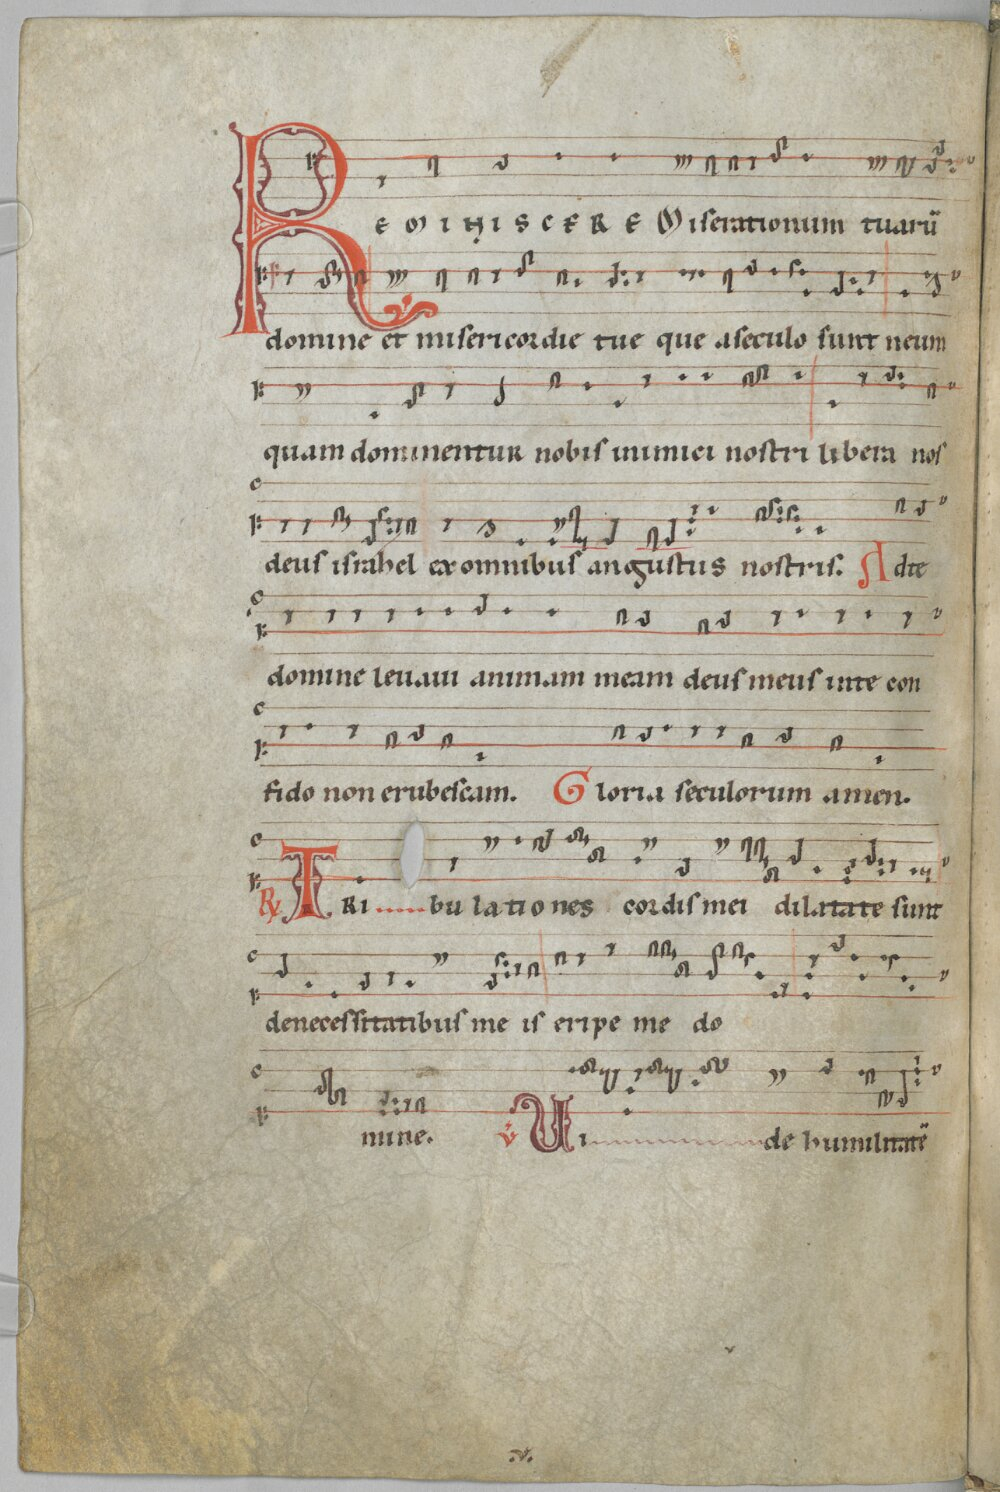 REMINISCERE Miserationum tuarū
domine et misericordie tue que aseculo sunt neum
quam dominentur nobis inimici nostri libera nos
deus israhel exomnibus angustiis nostris. Adte
domine levavi animam meam deus meus inte con
fido non erubescam. Gloria seculorum amen.
R TRIbulationes cordis mei dilatate sunt
denecessitatibus me is eripe me do
mine. V Uide humilitatē
.v.